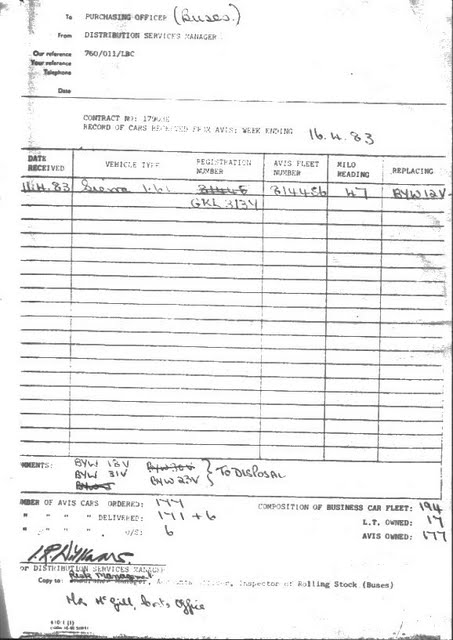 To PURCHASING OFFICER (Buses.)
From DISTRIBUTION SERVICES MANAGER
Our reference 760/011/LBC
Your reference
Telephone
Date
CONTRACT NO:
RECORD OF CARS RECEIVED FROM AVIS: WEEK ENDING 16.4.83
DATE RECEIVED VEHICLE TYPE REGISTRATION NUMBER AVIS FLEET NUMBER MILO READING REPLACING
11.4.83 Sierra 1.6L 314486 47 BYW 12V
GKL 313Y
MMENTS: BYW 12V
BYW 31V BYW 23V } TO DISPOSAL
MBER OF AVIS CARS ORDERED: 177
" " " " DELIVERED: 171 + 6
" " " " O/S: 6
COMPOSITION OF BUSINESS CAR FLEET: 194
L.T. OWNED: 17
AVIS OWNED: 177
OF DISTRIBUTION SERVICES MANAGER
Risk Management
Copy to: Manager, Officer, Inspector of Rolling Stock (Buses)
Mr McGill, Costs Office